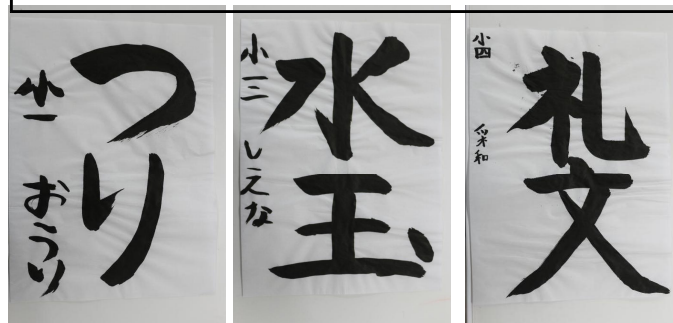 つり
小一 おうり
水玉
小三 しえな
礼文
小四